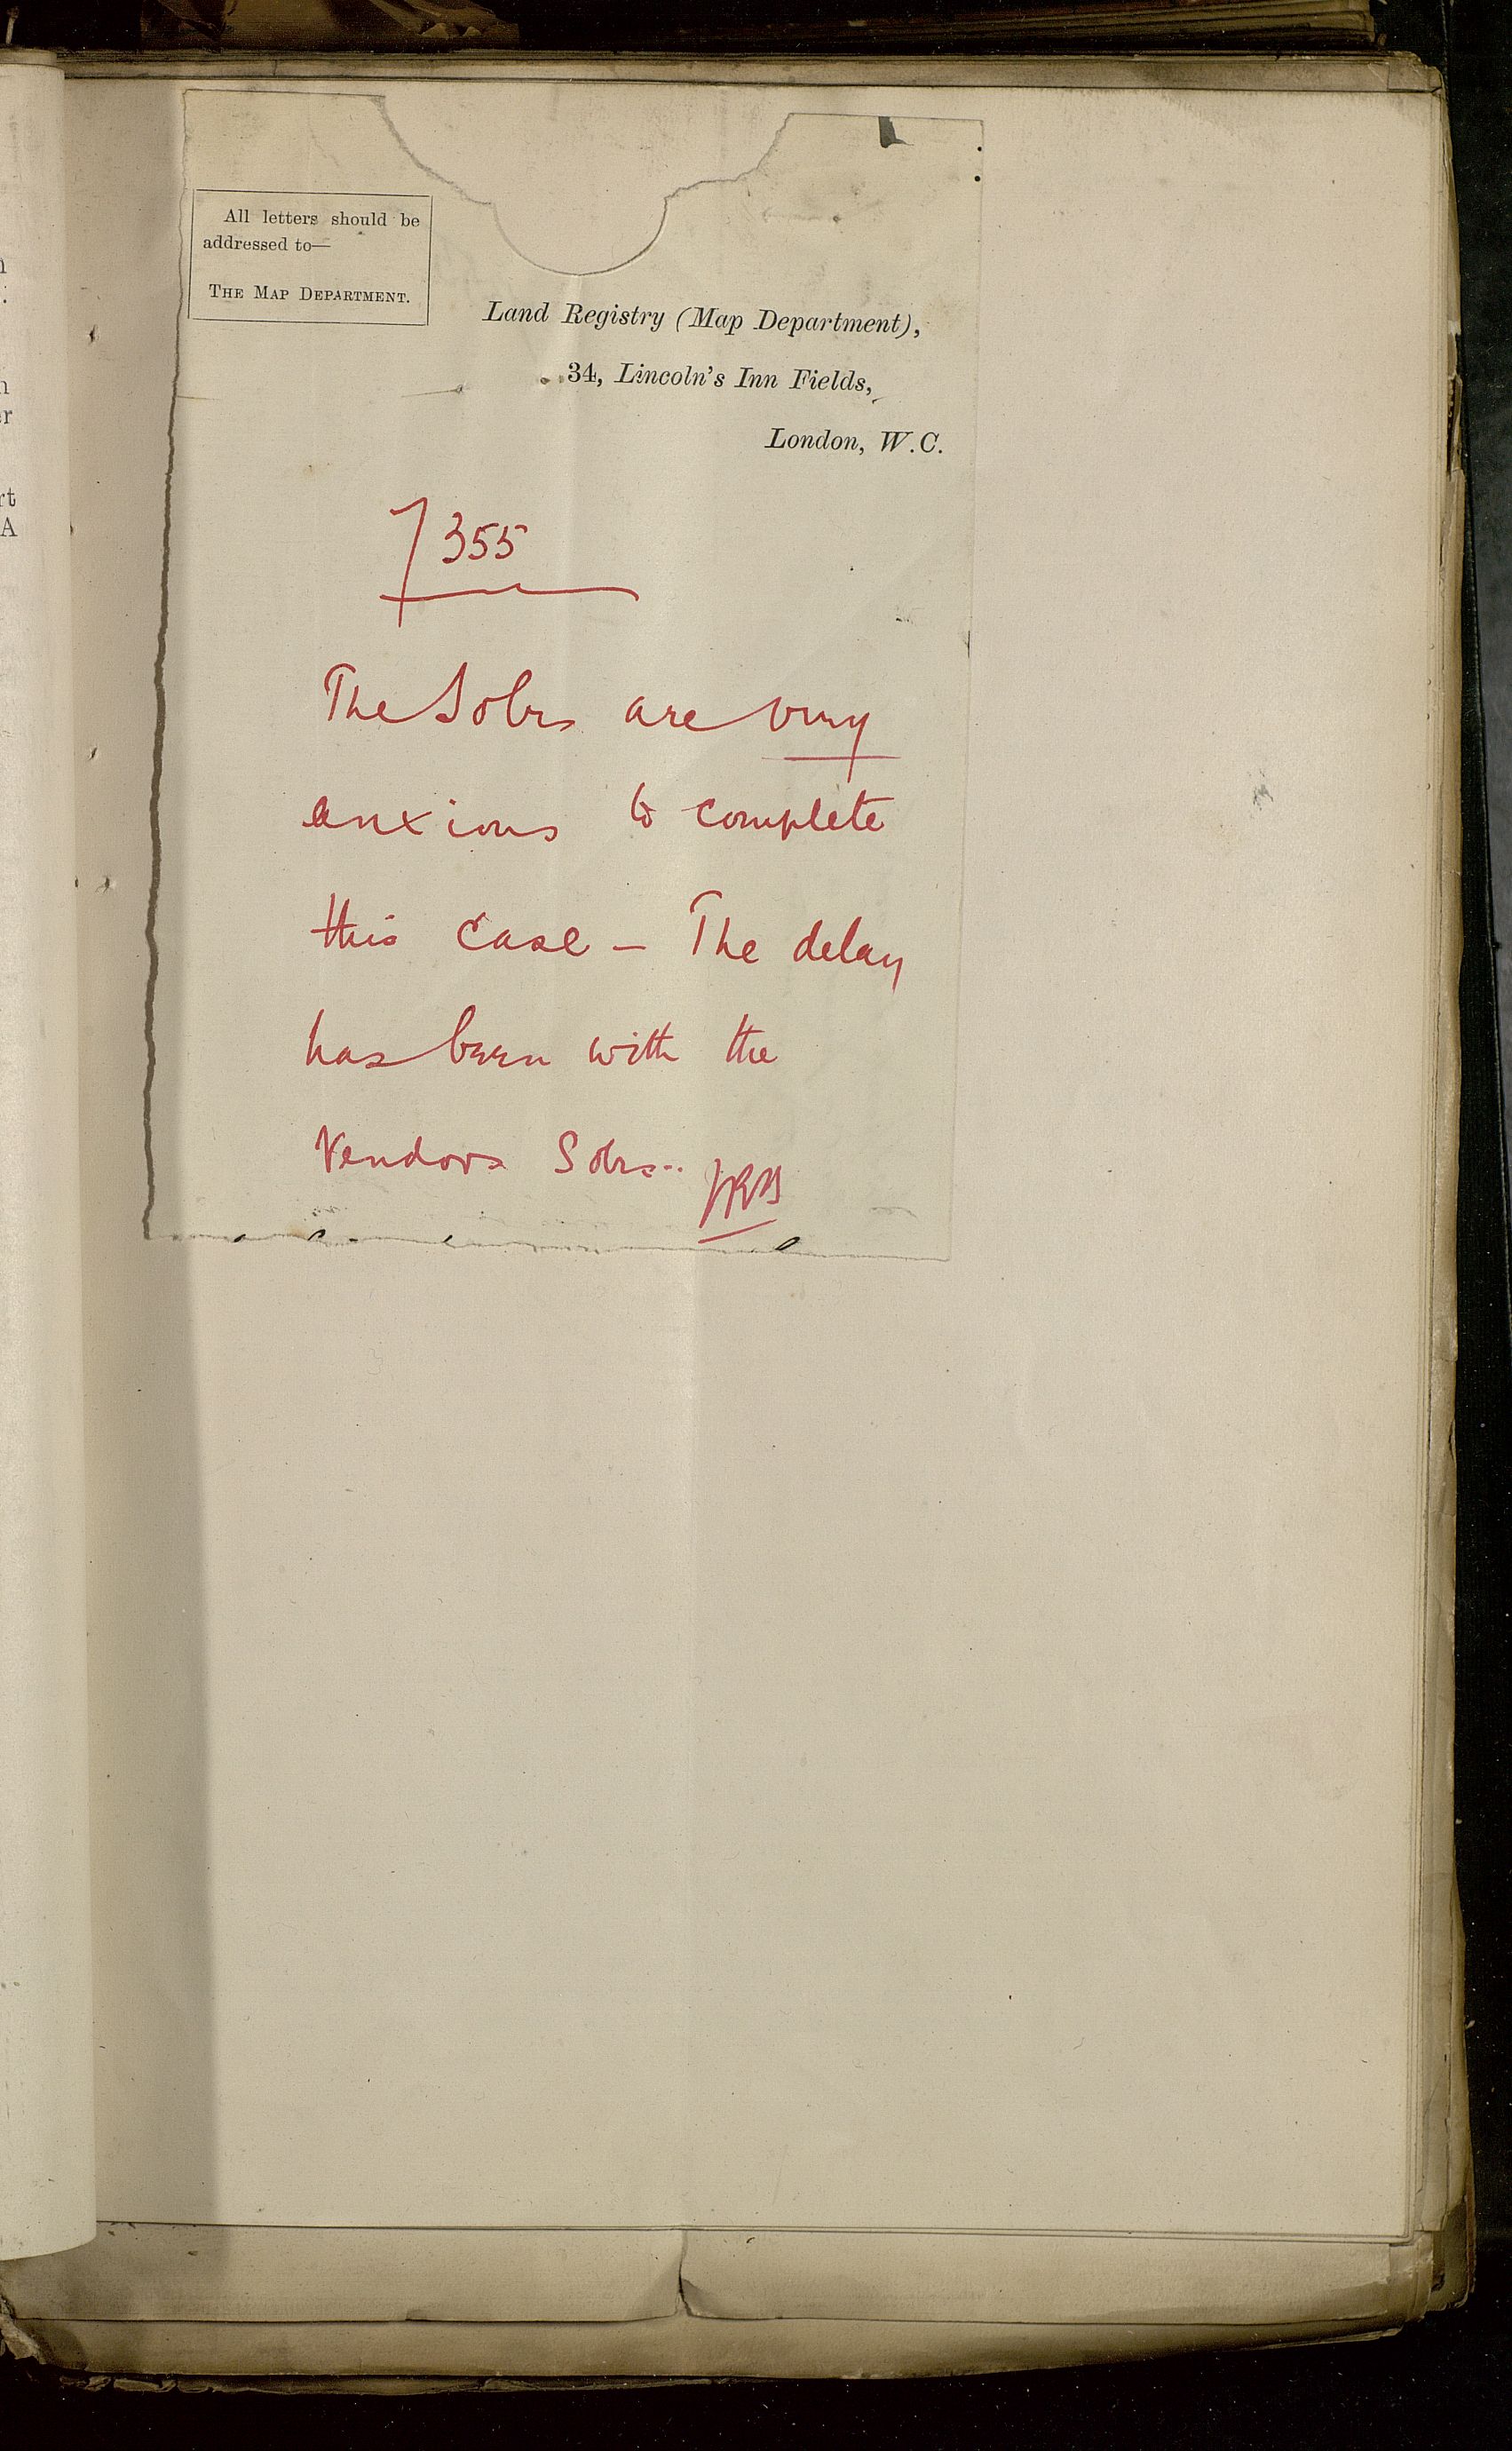 All letters should be
addressed to—
THE MAP DEPARTMENT.
Land Registry (Map Department),
34, Lincoln's Inn Fields,
London, W.C.
7355
The Solrs are very
anxious to complete
this case — The delay
has been with the
Vendors Solrs..